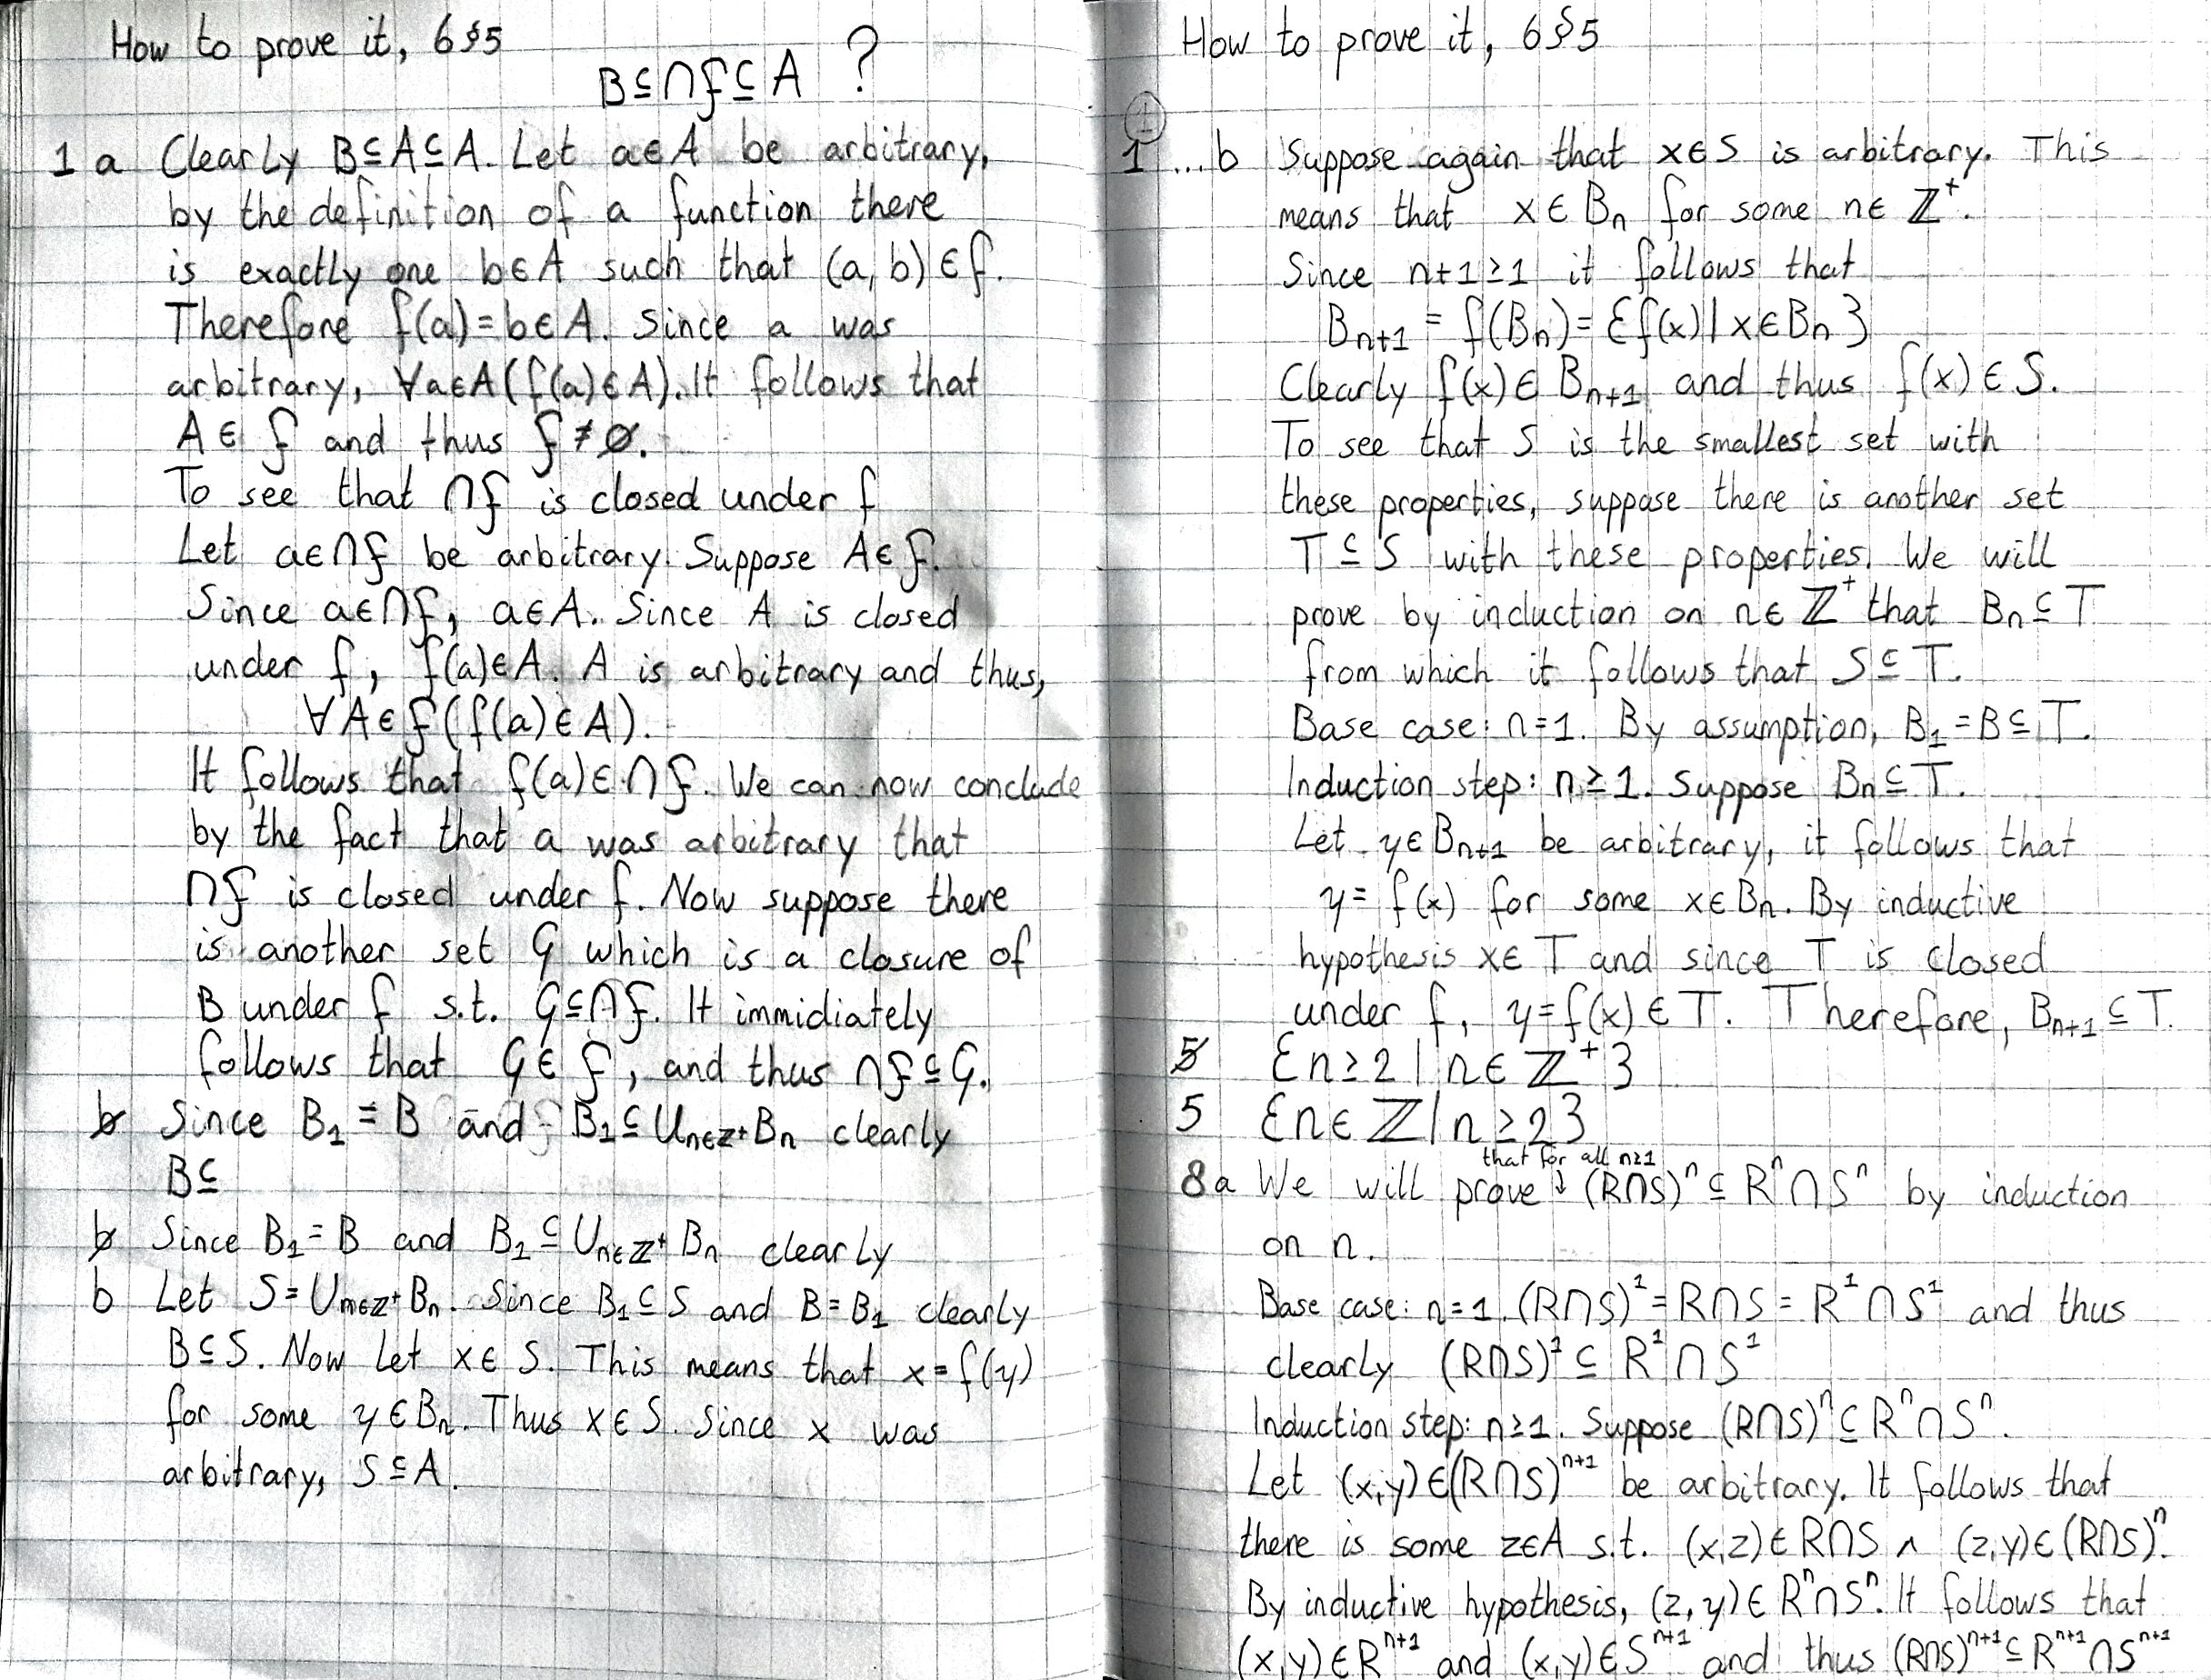 How to prove it, 6§5
B⊆∩F⊆A ?
1 a Clearly B⊆A⊆A. Let a∈A be arbitrary,
by the definition of a function there
is exactly one b∈A such that (a,b)∈f.
Therefore f(a)=b∈A. Since a was
arbitrary, ∀a∈A(f(a)∈A). It follows that
A∈F and thus F≠∅.
To see that ∩F is closed under f
Let a∈∩F be arbitrary. Suppose A∈F.
Since a∈∩F, a∈A. Since A is closed
under f, f(a)∈A. A is arbitrary and thus,
∀A∈F(f(a)∈A).
It follows that f(a)∈∩F. We can now conclude
by the fact that a was arbitrary that
∩F is closed under f. Now suppose there
is another set G which is a closure of
B under f s.t. G⊆∩F. It immidiately
follows that G∈F, and thus ∩F⊆G.
b Since B₁=B and B₁⊆∪n∈ℤ⁺Bn clearly
B⊆
b Since B₁=B and B₁⊆∪n∈ℤ⁺Bn clearly
b Let S=∪m∈ℤ⁺Bn. Since B₁⊆S and B=B₁ clearly
B⊆S. Now let x∈S. This means that x=f(y)
for some y∈Bn. Thus x∈S. Since x was
arbitrary, S⊆A.
How to prove it, 6§5
1 ...b Suppose again that x∈S is arbitrary. This
means that x∈Bn for some n∈ℤ⁺.
Since n+1≥1 it follows that
Bn+1 = f(Bn)={f(x)|x∈Bn}
Clearly f(x)∈Bn+1 and thus f(x)∈S.
To see that S is the smallest set with
these properties, suppose there is another set
T⊆S with these properties. We will
prove by induction on n∈ℤ⁺ that Bn⊆T
from which it follows that S⊆T.
Base case: n=1. By assumption, B₁=B⊆T.
Induction step: n≥1. Suppose Bn⊆T.
Let y∈Bn+1 be arbitrary, it follows that
y=f(x) for some x∈Bn. By inductive
hypothesis x∈T and since T is closed
under f, y=f(x)∈T. Therefore, Bn+1⊆T.
5 {n≥2|n∈ℤ⁺}
5 {n∈ℤ|n≥2}
that for all n≥1
8a We will prove ↓ (R∩S)ⁿ⊆Rⁿ∩Sⁿ by induction
on n.
Base case: n=1. (R∩S)¹=R∩S=R¹∩S¹ and thus
clearly (R∩S)¹⊆R¹∩S¹
Induction step: n≥1. Suppose (R∩S)ⁿ⊆Rⁿ∩Sⁿ.
Let (x,y)∈(R∩S)ⁿ⁺¹ be arbitrary. It follows that
there is some z∈A s.t. (x,z)∈R∩S ∧ (z,y)∈(R∩S)ⁿ.
By inductive hypothesis, (z,y)∈Rⁿ∩Sⁿ. It follows that
(x,y)∈Rⁿ⁺¹ and (x,y)∈Sⁿ⁺¹ and thus (R∩S)ⁿ⁺¹⊆Rⁿ⁺¹∩Sⁿ⁺¹